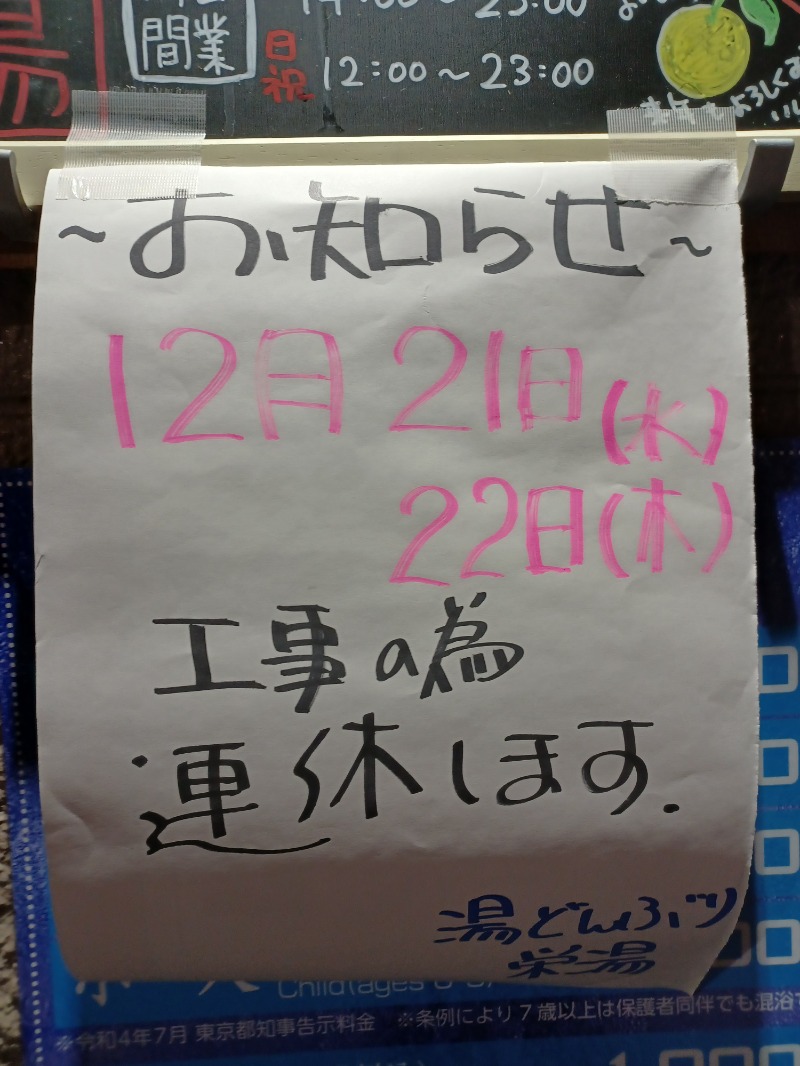 間業
日祝 12:00～23:00
来年もよろしくお
～お知らせ～
12月21日(水)
22日(木)
工事の為
連休します.
湯どんぶり
栄湯
Child(ages
※令和4年7月 東京都知事告示料金 ※条例により7歳以上は保護者同伴でも混浴